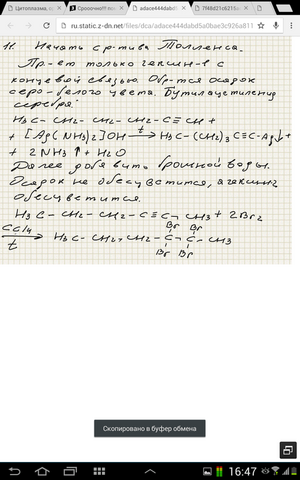 Цитоплазма, о
adace444dabd5
7f48d21c6215c
ru.static.z-dn.net/files/dca/adace444dabd5a0bae3c926a811
11. Начать с р-тива Толленса.
Пр-ет только гексин-1 с
концевой связью. Обр-тся осадок
серо-белого цвета. Бутилацетиленид
серебра.
H3C-CH2-CH2-CH2-C≡CH +
+ [Ag(NH3)2]OH t→ H3C-(CH2)3 C≡C-Ag↓ +
+ 2NH3↑ + H2O
Далее добавить бромной воды.
Осадок не обесцветится, а гексин
обесцветится.
H3C-CH2-CH2-C≡C-CH3 + 2Br2
Br Br
CCl4 t→ H3C-CH2-CH2-C-C-CH3
Br Br
Скопировано в буфер обмена
16:47